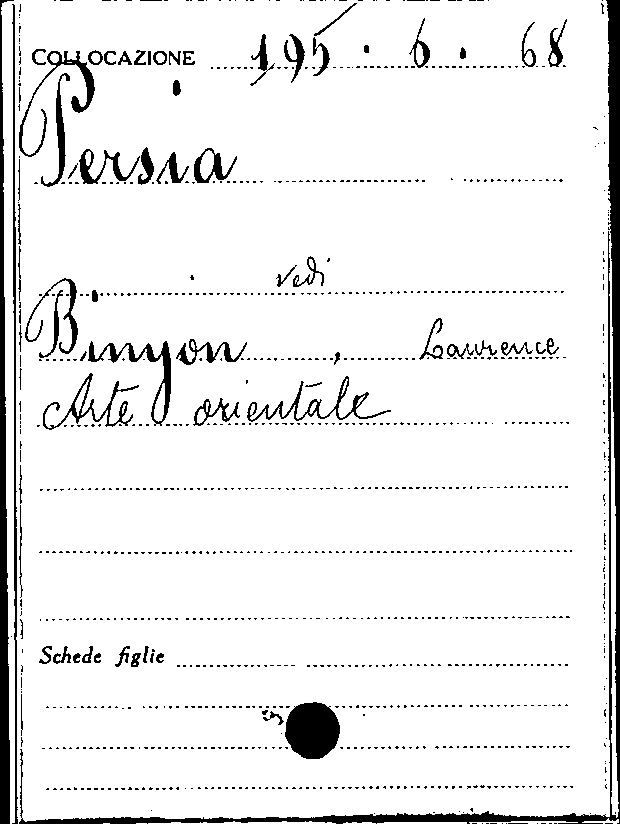 COLLOCAZIONE 195.6.68
Persia
vedi
Binyon, Laurence
Arte orientale
Schede figlie